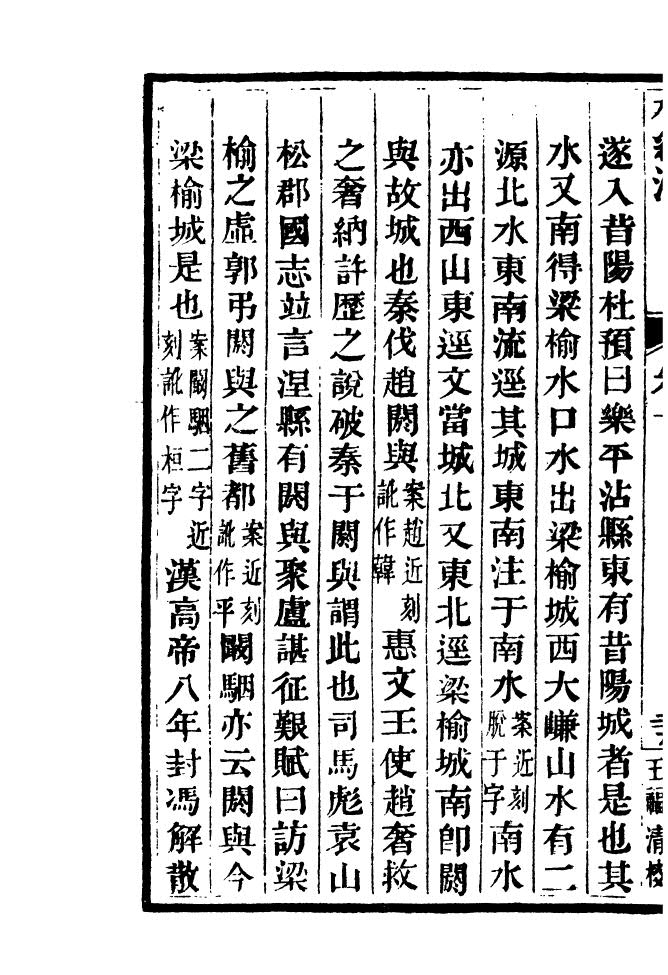 遂入昔陽杜預曰樂平沾縣東有昔陽城者是也其
水又南得梁榆水口水出梁榆城西大嵰山水有二
源北水東南流逕其城東南注于南水案近刻脫于字南水
亦出西山東逕文當城北又東北逕梁榆城南卽閼
與故城也秦伐趙閼與案趙近刻訛作韓惠文王使趙奢救
之奢納許歷之說破秦于閼與謂此也司馬彪袁山
松郡國志竝言涅縣有閼與聚盧諶征艱賦曰訪梁
榆之虛郭弔閼與之舊都案近刻訛作平闞駰亦云閼與今
梁榆城是也案闞駰二字近刻訛作桓字漢高帝八年封馮解散
王福清校